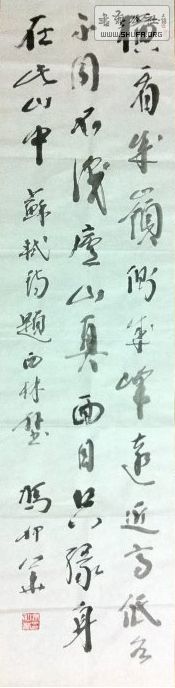 WWW.SHUFA.ORG
橫看成嶺側成峰遠近高低各
不同不識廬山真面目只緣身
在此山中 蘇軾詩題西林壁